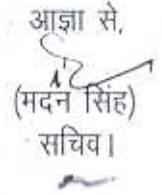 आज्ञा से,
(मदन सिंह)
सचिव।